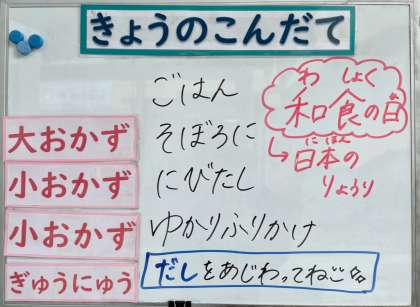 きょうのこんだて
ごはん
大おかず そぼろに
小おかず にびたし
小おかず ゆかりふりかけ
ぎゅうにゅう
だしをあじわってね
わ しょく
和食の日
に ほん
↳日本の
りょうり